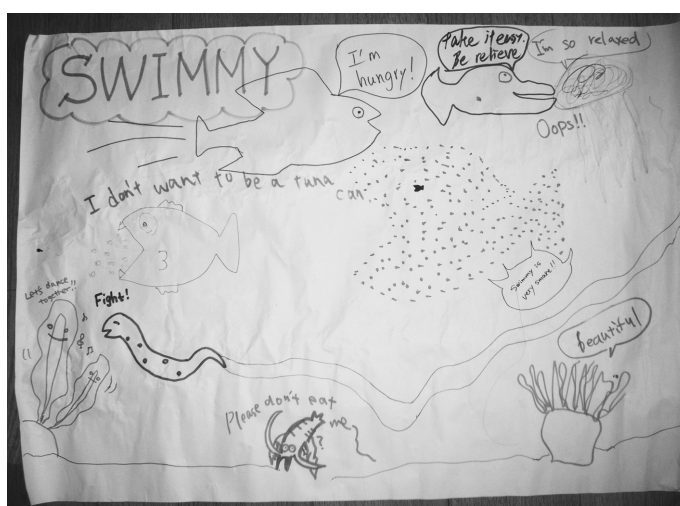 SWIMMY
I'm
hungry!
Take it easy.
Be relieve
I'm so relaxed
Oops!!
I don't want to be a tuna
can.
Swimmy is
very smart!!
Let's dance
together!!
Fight!
beautiful
Please don't eat
me